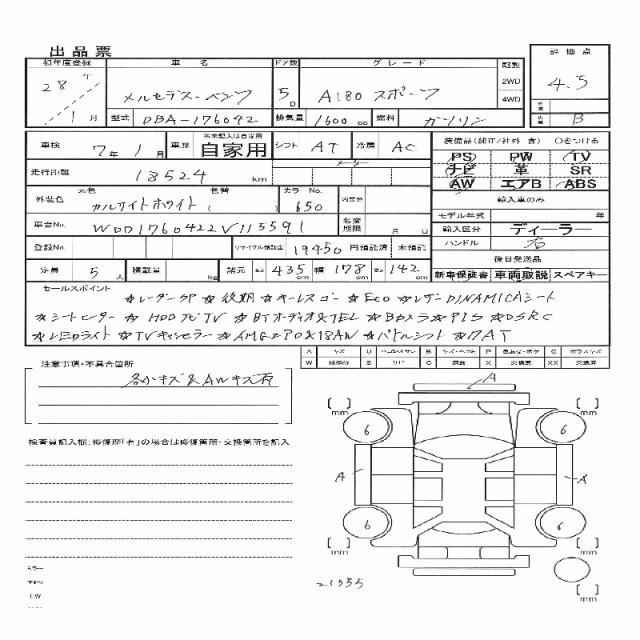 出品票
初年度登録 車名 ドア数 グレード 駆動 評価点
28年 1月 メルセデス-ベンツ 5D A180 スポーツ 2WD 4WD 4.5
型式 DBA-176042 排気量 1600cc 燃料 ガソリン 内装 B
車検 7年1月 車歴 自家用 シフト AT 冷房 AC 装備品(純正/社外 含) ○をつける
PS PW TV
走行距離 メーター ナビ 革 SR
18524 km AW エアB ABS
元色 色替 カラーNo. 輸入車のみ
外装色 カルサイトホワイト ( 650 内装色 モデル年式 年
車台No. WDD1760422V115591 名変期限 月 日 輸入区分 ディーラー
ハンドル 右
登録No. リサイクル預託金 19450 円預託済 未預託 後日発送品
定員 5人 積載量 kg 諸元 長さ 435cm 幅 178cm 高さ 142cm 新車保証書 車両取説 スペアキー
セールスポイント
☆レーダーSP ☆後期 ☆キーレスゴー ☆Eco ☆レザーDINAMICAシート
☆シートヒーター ☆HDDナビTV ☆BTオーディオ&TEL ☆Bカメラ ☆PTS ☆DSRC
☆LEDライト ☆TVキャンセラー ☆AMGエアロ&18AW ☆パドルシフト ☆7AT
A キズ U B キズ・ヘコミ P 色あせ・ボケ G ガラスキズ
W S サビ C 腐食 X 交換要 XX 交換済
注意事項・不具合箇所
各小キズ&AWキズ有
検査員記入欄:修復歴「有」の場合は修復箇所・交換箇所を記入
A
[ ] mm [ ] mm
6 6
A A
6 6
[ ] mm [ ] mm
[ ] mm
ミラー
TW
21355